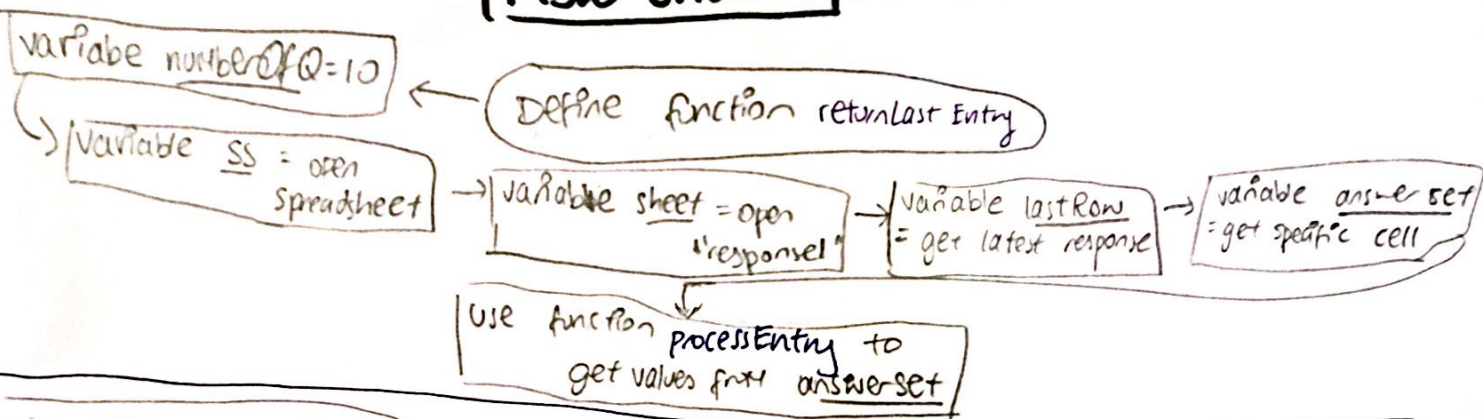 variabe numberOfQ=10
Define function returnLast Entry
variable SS = open
spreadsheet
variable sheet = open
"response1"
variable lastRow
= get latest response
variable answer set
= get specific cell
use function processEntry to
get values from answerset